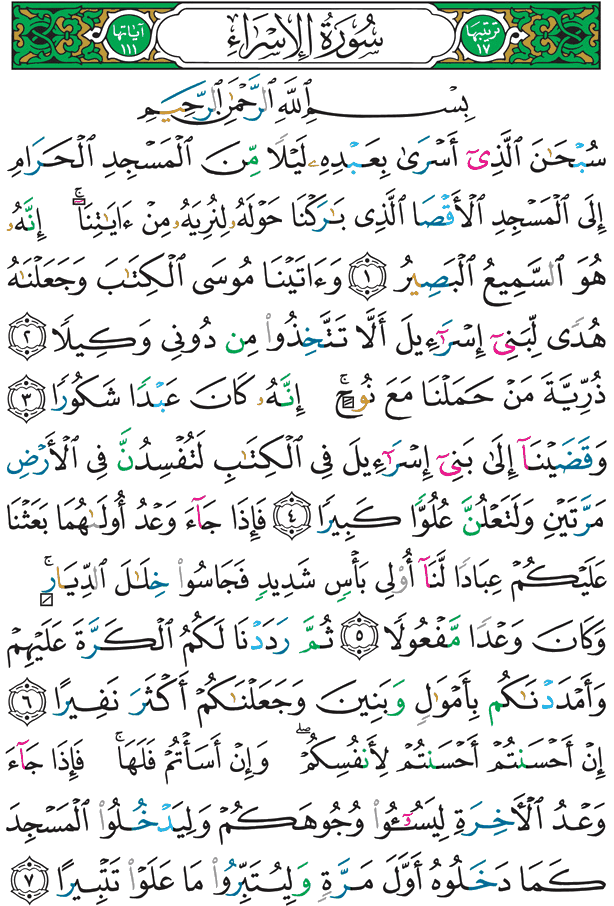 ترتيبها ١٧ سُورَةُ الإِسْرَاءِ آياتها ١١١
بِسْمِ ٱللَّهِ ٱلرَّحْمَٰنِ ٱلرَّحِيمِ
سُبْحَٰنَ ٱلَّذِىٓ أَسْرَىٰ بِعَبْدِهِۦ لَيْلًا مِّنَ ٱلْمَسْجِدِ ٱلْحَرَامِ
إِلَى ٱلْمَسْجِدِ ٱلْأَقْصَا ٱلَّذِى بَٰرَكْنَا حَوْلَهُۥ لِنُرِيَهُۥ مِنْ ءَايَٰتِنَآ ۚ إِنَّهُۥ
هُوَ ٱلسَّمِيعُ ٱلْبَصِيرُ ﴿١﴾ وَءَاتَيْنَا مُوسَى ٱلْكِتَٰبَ وَجَعَلْنَٰهُ
هُدًى لِّبَنِىٓ إِسْرَٰٓءِيلَ أَلَّا تَتَّخِذُوا۟ مِن دُونِى وَكِيلًا ﴿٢﴾
ذُرِّيَّةَ مَنْ حَمَلْنَا مَعَ نُوحٍ ۚ إِنَّهُۥ كَانَ عَبْدًا شَكُورًا ﴿٣﴾
وَقَضَيْنَآ إِلَىٰ بَنِىٓ إِسْرَٰٓءِيلَ فِى ٱلْكِتَٰبِ لَتُفْسِدُنَّ فِى ٱلْأَرْضِ
مَرَّتَيْنِ وَلَتَعْلُنَّ عُلُوًّا كَبِيرًا ﴿٤﴾ فَإِذَا جَآءَ وَعْدُ أُولَىٰهُمَا بَعَثْنَا
عَلَيْكُمْ عِبَادًا لَّنَآ أُو۟لِى بَأْسٍ شَدِيدٍ فَجَاسُوا۟ خِلَٰلَ ٱلدِّيَارِ ۚ
وَكَانَ وَعْدًا مَّفْعُولًا ﴿٥﴾ ثُمَّ رَدَدْنَا لَكُمُ ٱلْكَرَّةَ عَلَيْهِمْ
وَأَمْدَدْنَٰكُم بِأَمْوَٰلٍ وَبَنِينَ وَجَعَلْنَٰكُمْ أَكْثَرَ نَفِيرًا ﴿٦﴾
إِنْ أَحْسَنتُمْ أَحْسَنتُمْ لِأَنفُسِكُمْ ۖ وَإِنْ أَسَأْتُمْ فَلَهَا ۚ فَإِذَا جَآءَ
وَعْدُ ٱلْءَاخِرَةِ لِيَسُۥٓـُٔوا۟ وُجُوهَكُمْ وَلِيَدْخُلُوا۟ ٱلْمَسْجِدَ
كَمَا دَخَلُوهُ أَوَّلَ مَرَّةٍ وَلِيُتَبِّرُوا۟ مَا عَلَوْا۟ تَتْبِيرًا ﴿٧﴾